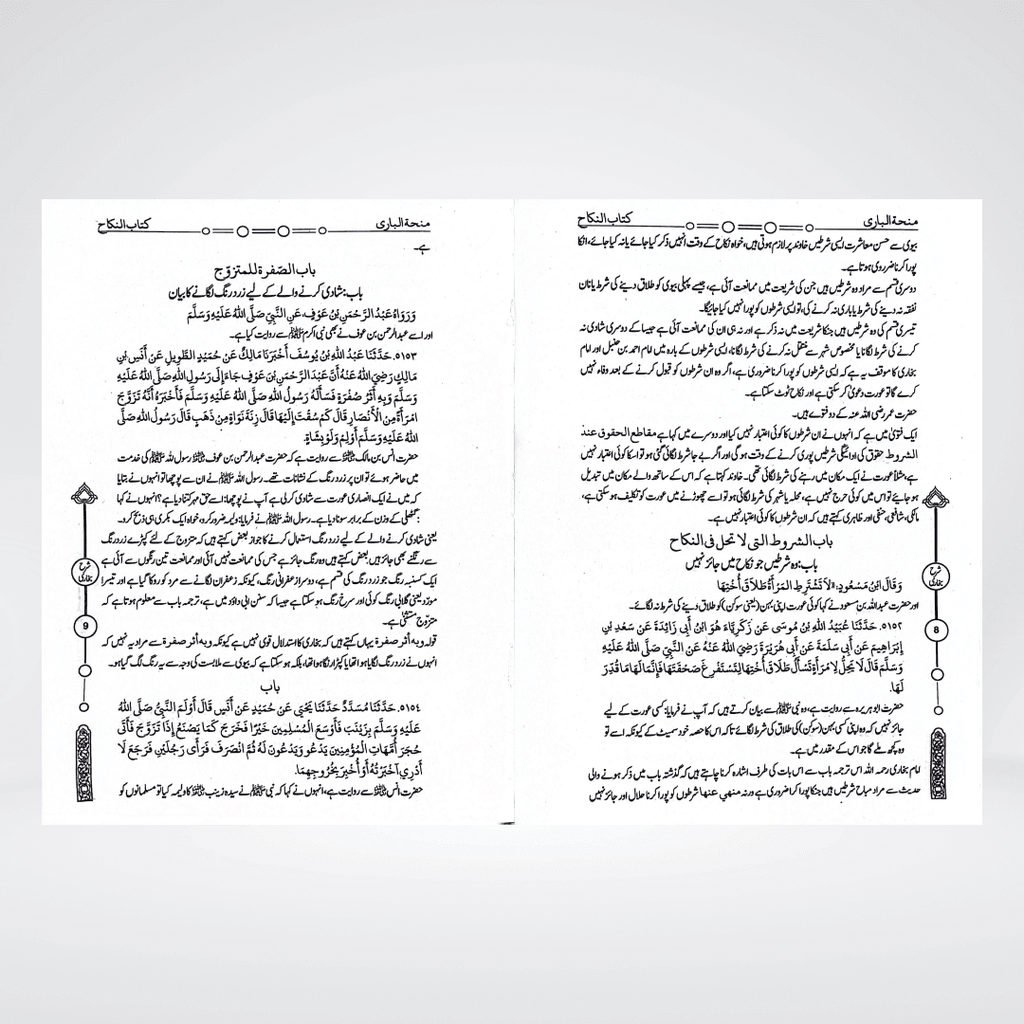 منحة الباری
کتاب النکاح
بیوی سے حسن معاشرت ایسی شرطیں خاوند پر لازم ہوتی ہیں، خواہ نکاح کے وقت انہیں ذکر کیا جائے یا نہ کیا جائے، انکا
پورا کرنا ضروری ہوتا ہے۔
دوسری قسم سے مراد وہ شرطیں ہیں جن کی شریعت میں ممانعت آئی ہے، جیسے پہلی بیوی کو طلاق دینے کی شرط یا نان
نفقہ نہ دینے کی شرط یا باری نہ کرنے کی، تو ایسی شرطوں کو پورا نہیں کیا جائیگا۔
تیسری قسم کی وہ شرطیں ہیں جنکا شریعت میں نہ ذکر ہے اور نہ ہی ان کی ممانعت آئی ہے جیسا کے دوسری شادی نہ
کرنے کی شرط لگانا یا مخصوص شہر سے منتقل نہ کرنے کی شرط لگانا، ایسی شرطوں کے بارہ میں امام احمد بن حنبل اور امام
بخاری کا موقف یہ ہے کہ ایسی شرطوں کو پورا کرنا ضروری ہے، اگر وہ ان شرطوں کو قبول کرنے کے بعد وفاء نہیں
کرے گا تو عورت دعویٰ کر سکتی ہے اور نکاح ٹوٹ سکتا ہے۔
حضرت عمر رضی اللہ عنہ کے دو فتوے ہیں۔
ایک فتویٰ میں ہے کہ انہوں نے ان شرطوں کا کوئی اعتبار نہیں کیا اور دوسرے میں کہا ہے مقاطع الحقوق عند
الشروط حقوق کی ادائیگی شرطیں پوری کرنے کے وقت ہوگی اور اگر بے جا شرط لگائی گئی ہو تو اسکا کوئی اعتبار نہیں
ہے، مثلاً عورت نے ایک مکان میں رہنے کی شرط لگائی تھی۔ خاوند کہتا ہے کہ اس کے ساتھ والے مکان میں تبدیل
ہو جائیے تو اس میں کوئی حرج نہیں ہے، محلہ یا شہر کی شرط لگائی ہو تو اسے چھوڑنے میں عورت کو تکلیف ہو سکتی ہے،
مالکی، شافعی، حنفی اور ظاہری کہتے ہیں کہ ان شرطوں کا کوئی اعتبار نہیں ہے۔
باب الشروط التی لا تحل فی النکاح
باب: وہ شرطیں جو نکاح میں جائز نہیں
وَقَالَ ابْنُ مَسْعُودٍ: «لاَ تَشْتَرِطِ المَرْأَةُ طَلاَقَ أُخْتِهَا
اور حضرت عبداللہ بن مسعود نے کہا کوئی عورت اپنی بہن (یعنی سوکن) کو طلاق دینے کی شرط نہ لگائے۔
٥١٥٢. حَدَّثَنَا عُبَيْدُ اللهِ بْنُ مُوسَى عَنْ زَكَرِيَّاءَ هُوَ ابْنُ أَبِي زَائِدَةَ عَنْ سَعْدِ بْنِ
إِبْرَاهِيمَ عَنْ أَبِي سَلَمَةَ عَنْ أَبِي هُرَيْرَةَ رَضِيَ اللهُ عَنْهُ عَنِ النَّبِيِّ صَلَّى اللهُ عَلَيْهِ
وَسَلَّمَ قَالَ لَا يَحِلُّ لِامْرَأَةٍ تَسْأَلُ طَلَاقَ أُخْتِهَا لِتَسْتَفْرِغَ صَحْفَتَهَا فَإِنَّمَا لَهَا مَا قُدِّرَ
لَهَا.
حضرت ابو ہریرہ سے روایت ہے، وہ نبی ﷺ سے بیان کرتے ہیں کہ آپ نے فرمایا: کسی عورت کے لیے
جائز نہیں کہ وہ اپنی کسی بہن (سوکن) کی طلاق کی شرط لگائے تاکہ اس کا حصہ خود سمیٹ کے کیونکہ اسے تو
وہ کچھ ملے گا جو اس کے مقدر میں ہے۔
امام بخاری رحمہ اللہ اس ترجمہ باب سے اس بات کی طرف اشارہ کرنا چاہتے ہیں کہ گذشتہ باب میں ذکر ہونے والی
حدیث سے مراد مباح شرطیں ہیں جنکا پورا کرنا ضروری ہے ورنہ منھی عنھا شرطوں کو پورا کرنا حلال اور جائز نہیں
شرح
بخاری
8
منحة الباری
کتاب النکاح
ہے۔
باب الصفرة للمتزوّج
باب: شادی کرنے والے کے لیے زرد رنگ لگانے کا بیان
وَرَوَاهُ عَبْدُ الرَّحْمَنِ بْنُ عَوْفٍ، عَنِ النَّبِيِّ صَلَّى اللهُ عَلَيْهِ وَسَلَّمَ
اور اسے عبدالرحمن بن عوف نے بھی نبی اکرم ﷺ سے روایت کیا ہے۔
٥١٥٣. حَدَّثَنَا عَبْدُ اللهِ بْنُ يُوسُفَ أَخْبَرَنَا مَالِكٌ عَنْ حُمَيْدٍ الطَّوِيلِ عَنْ أَنَسِ بْنِ
مَالِكٍ رَضِيَ اللهُ عَنْهُ أَنَّ عَبْدَ الرَّحْمَنِ بْنَ عَوْفٍ جَاءَ إِلَى رَسُولِ اللهِ صَلَّى اللهُ عَلَيْهِ
وَسَلَّمَ وَبِهِ أَثَرُ صُفْرَةٍ فَسَأَلَهُ رَسُولُ اللهِ صَلَّى اللهُ عَلَيْهِ وَسَلَّمَ فَأَخْبَرَهُ أَنَّهُ تَزَوَّجَ
امْرَأَةً مِنَ الْأَنْصَارِ قَالَ كَمْ سُقْتَ إِلَيْهَا قَالَ زِنَةَ نَوَاةٍ مِنْ ذَهَبٍ قَالَ رَسُولُ اللهِ صَلَّى
اللهُ عَلَيْهِ وَسَلَّمَ أَوْلِمْ وَلَوْ بِشَاةٍ.
حضرت انس بن مالک سے روایت ہے کہ حضرت عبدالرحمن بن عوف رسول اللہ ﷺ کی خدمت
میں حاضر ہوئے تو ان پر زرد رنگ کے نشانات تھے۔ رسول اللہ ﷺ نے ان سے پوچھا تو انہوں نے بتایا
کہ میں نے ایک انصاری عورت سے شادی کرلی ہے آپ نے پوچھا: اسے حق مہر کتنا دیا ہے؟ انہوں نے کہا
: گٹھلی کے وزن کے برابر سونا دیا ہے۔ رسول اللہ ﷺ نے فرمایا: ولیمہ ضرور کرو، خواہ ایک بکری ہی ذبح کرو۔
یعنی شادی کرنے والے کے لیے زرد رنگ استعمال کرنے کا جواز بعض کہتے ہیں کہ متزوج کے لئے کپڑے زرد رنگ
سے رنگنے بھی جائز ہیں۔ بعض کہتے ہیں وہ رنگ جائز ہے جس کی ممانعت نہیں آئی اور ممانعت تین رنگوں سے آئی ہے
ایک کسنبہ رنگ جو زرد رنگ کی قسم ہے، دوسرا زعفرانی رنگ، کیونکہ زعفران لگانے سے مرد کو روکا گیا ہے اور تیسرا
مورد یعنی گلابی رنگ کوئی اور سرخ رنگ ہو سکتا ہے جیسا کہ سنن ابی داؤد میں ہے، ترجمہ باب سے معلوم ہوتا ہے کہ
متزوج مستثنیٰ ہے۔
قوله وبه أثر صفرة یہاں کہتے ہیں کہ بخاری کا استدلال قوی نہیں ہے کیونکہ وبه أثر صفرة سے مراد یہ نہیں کہ
انہوں نے زرد رنگ لگایا ہوا تھا یا کپڑا رنگا ہوا تھا، بلکہ ہو سکتا ہے کہ بیوی سے ملابست کی وجہ سے یہ رنگ لگ گیا ہو۔
باب
٥١٥٤. حَدَّثَنَا مُسَدَّدٌ حَدَّثَنَا يَحْيَى عَنْ حُمَيْدٍ عَنْ أَنَسٍ قَالَ أَوْلَمَ النَّبِيُّ صَلَّى اللهُ
عَلَيْهِ وَسَلَّمَ بِزَيْنَبَ فَأَوْسَعَ الْمُسْلِمِينَ خَيْرًا فَخَرَجَ كَمَا يَصْنَعُ إِذَا تَزَوَّجَ فَأَتَى
حُجَرَ أُمَّهَاتِ الْمُؤْمِنِينَ يَدْعُو وَيَدْعُونَ لَهُ ثُمَّ انْصَرَفَ فَرَأَى رَجُلَيْنِ فَرَجَعَ لَا
أَدْرِي آخْبَرْتُهُ أَوْ أُخْبِرَ بِخُرُوجِهِمَا.
حضرت انس سے روایت ہے، انہوں نے کہا کہ نبی ﷺ نے سیدہ زینب کا ولیمہ کیا تو مسلمانوں کو
شرح
بخاری
9